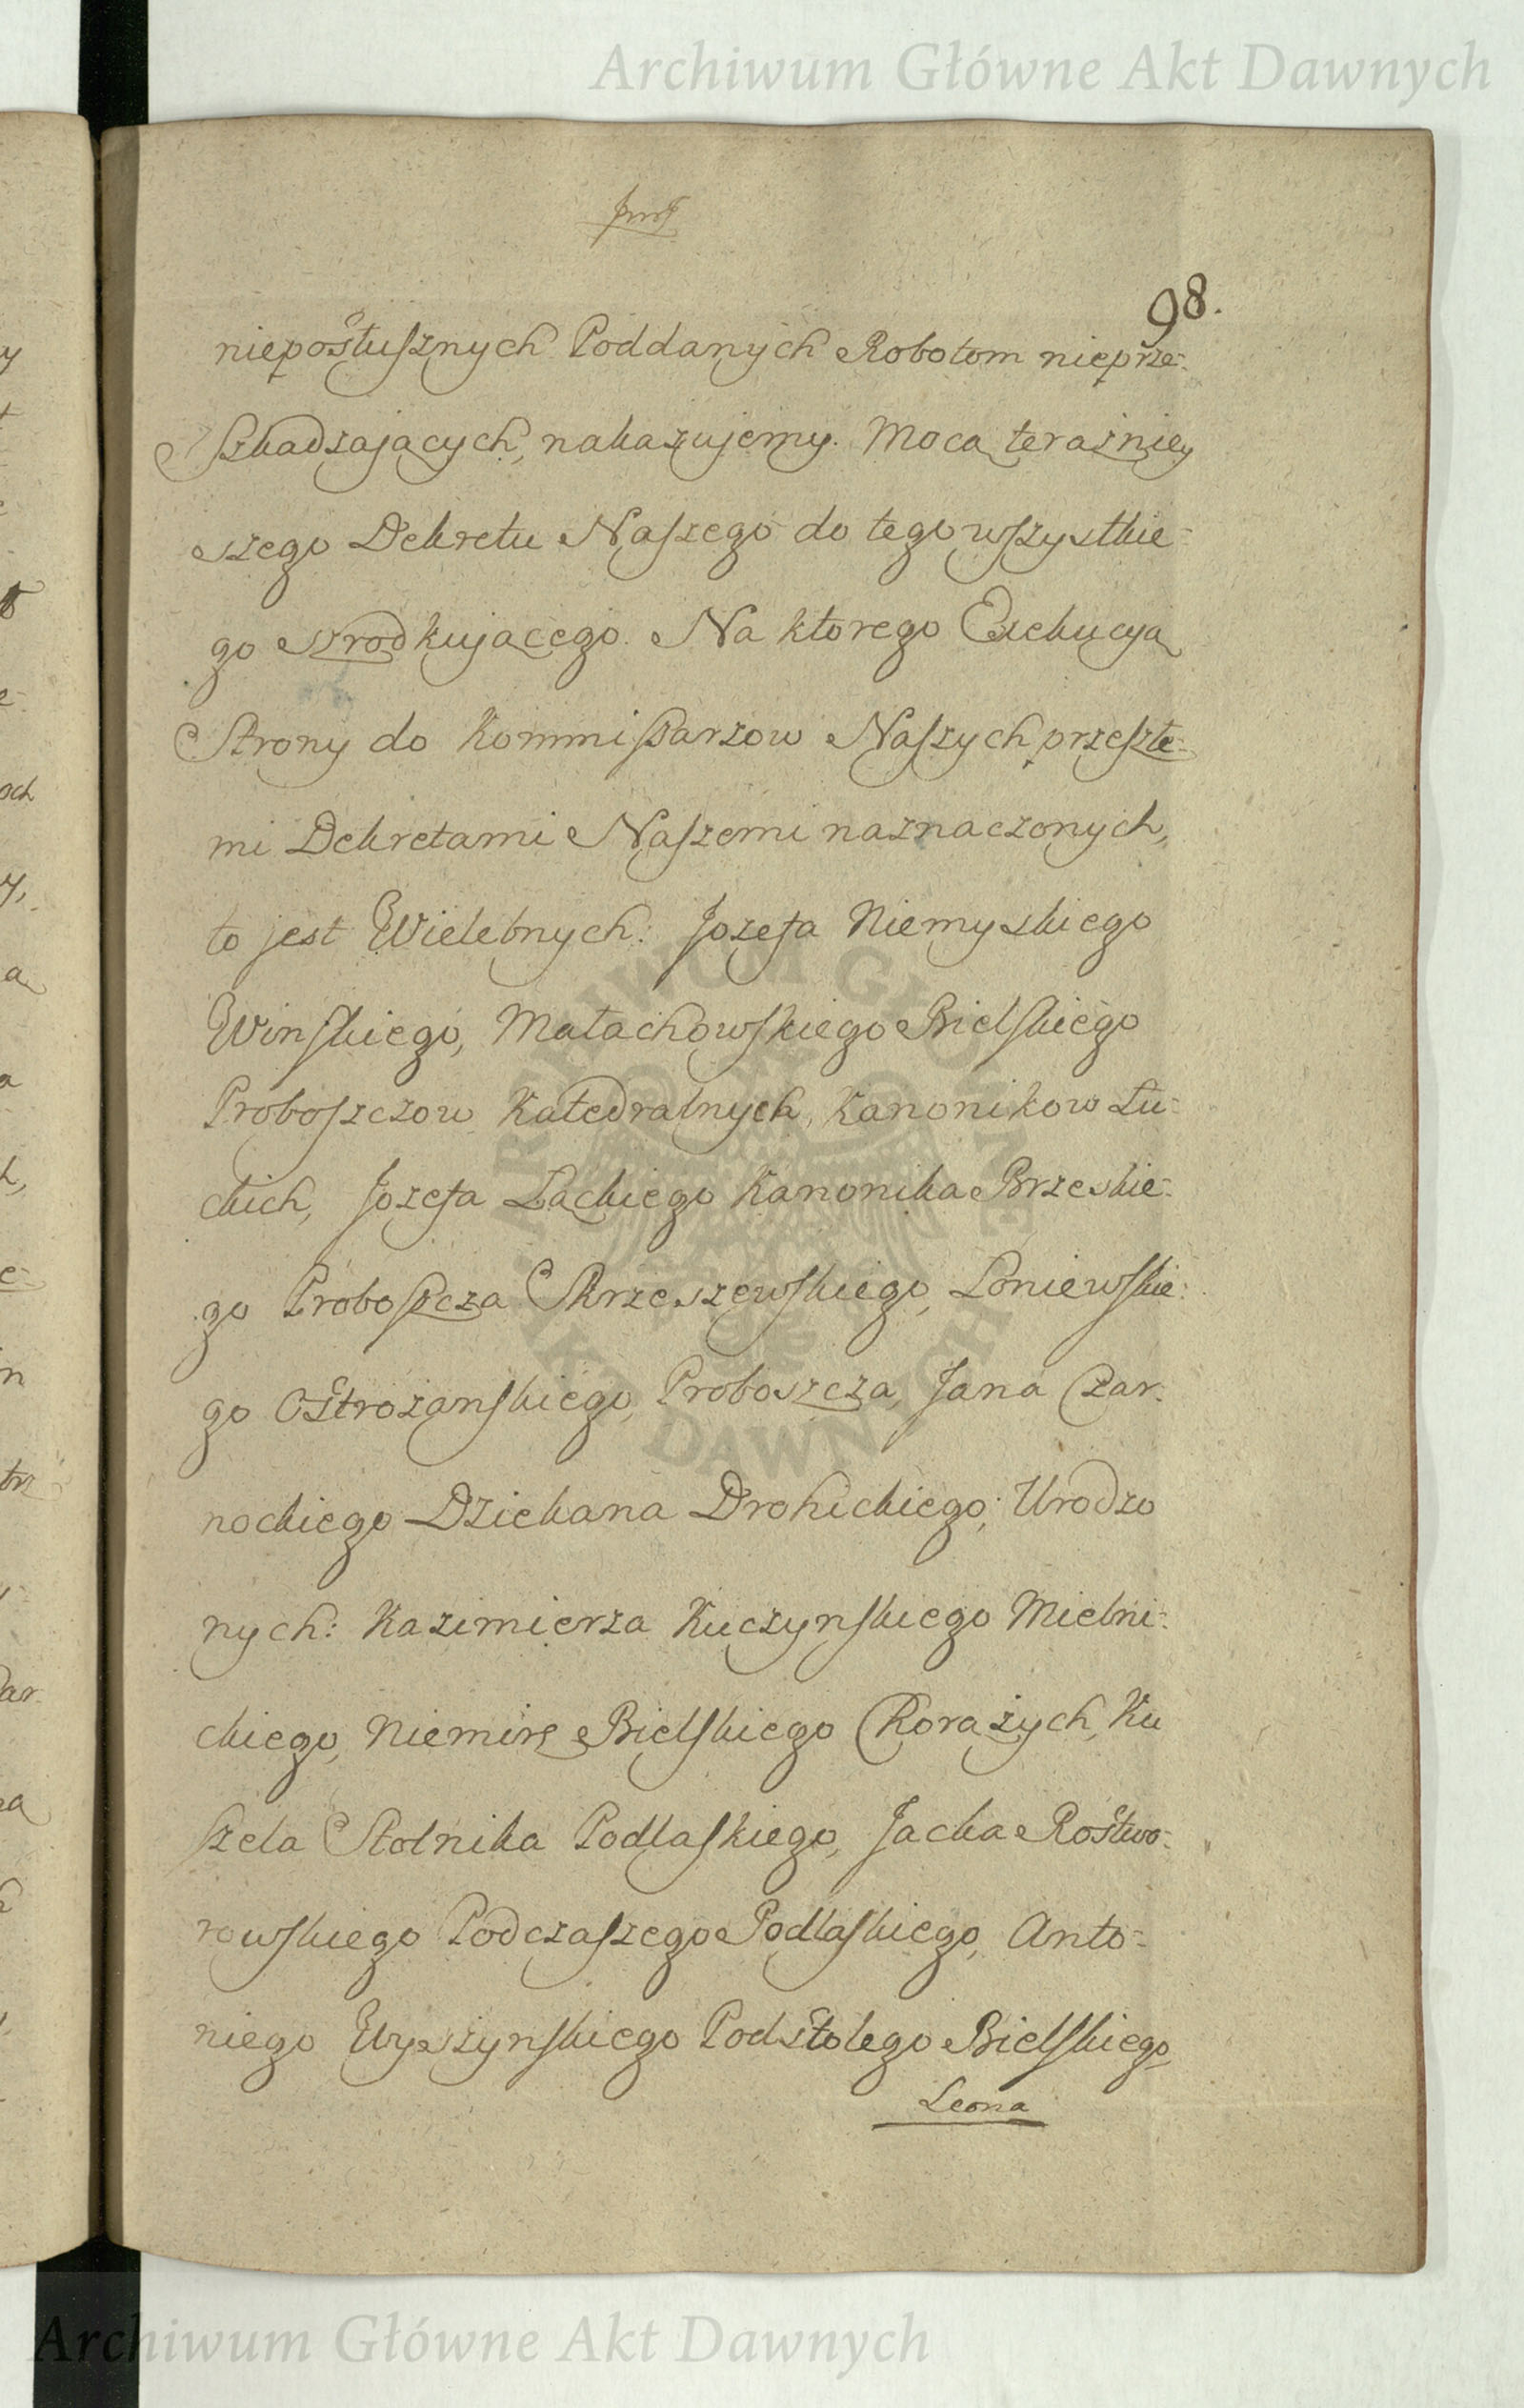 Archiwum Główne Akt Dawnych
98.
nieposłusznych Poddanych Robotom nieprze-
szkadzaiących, nakazujemy. Mocą teraźniey
szego Dekretu Naszego do tego wszystkie-
go srodkującego. Na ktorego Exekucyą
Strony do Kommissarzow Naszych przeszłe-
mi Dekretami Naszemi naznaczonych,
to jest Wielebnych: Jozefa Niemyskiego
Winskiego, Małachowskiego Bielskiego
Proboszczow Katedralnych, Kanonikow Łu-
ckich, Jozefa Łąckiego Kanonika Brzeskie-
go Proboszcza Skrzeszewskiego, Łoniewskie-
go Ostrożanskiego, Proboszcza, Jana Czar-
nockiego Dziekana Drohickiego; Urodzo
nych: Kazimierza Kuczynskiego Mielni-
ckiego, Niemirę Bielskiego Chorążych, Ku
szela Stolnika Podlaskiego, Jacka Rostwo-
rowskiego Podczaszego Podlaskiego, Anto-
niego Wyszynskiego Podstolego Bielskiego,
Leona
ARCHIWUM GŁÓWNE AKT DAWNYCH
Archiwum Główne Akt Dawnych